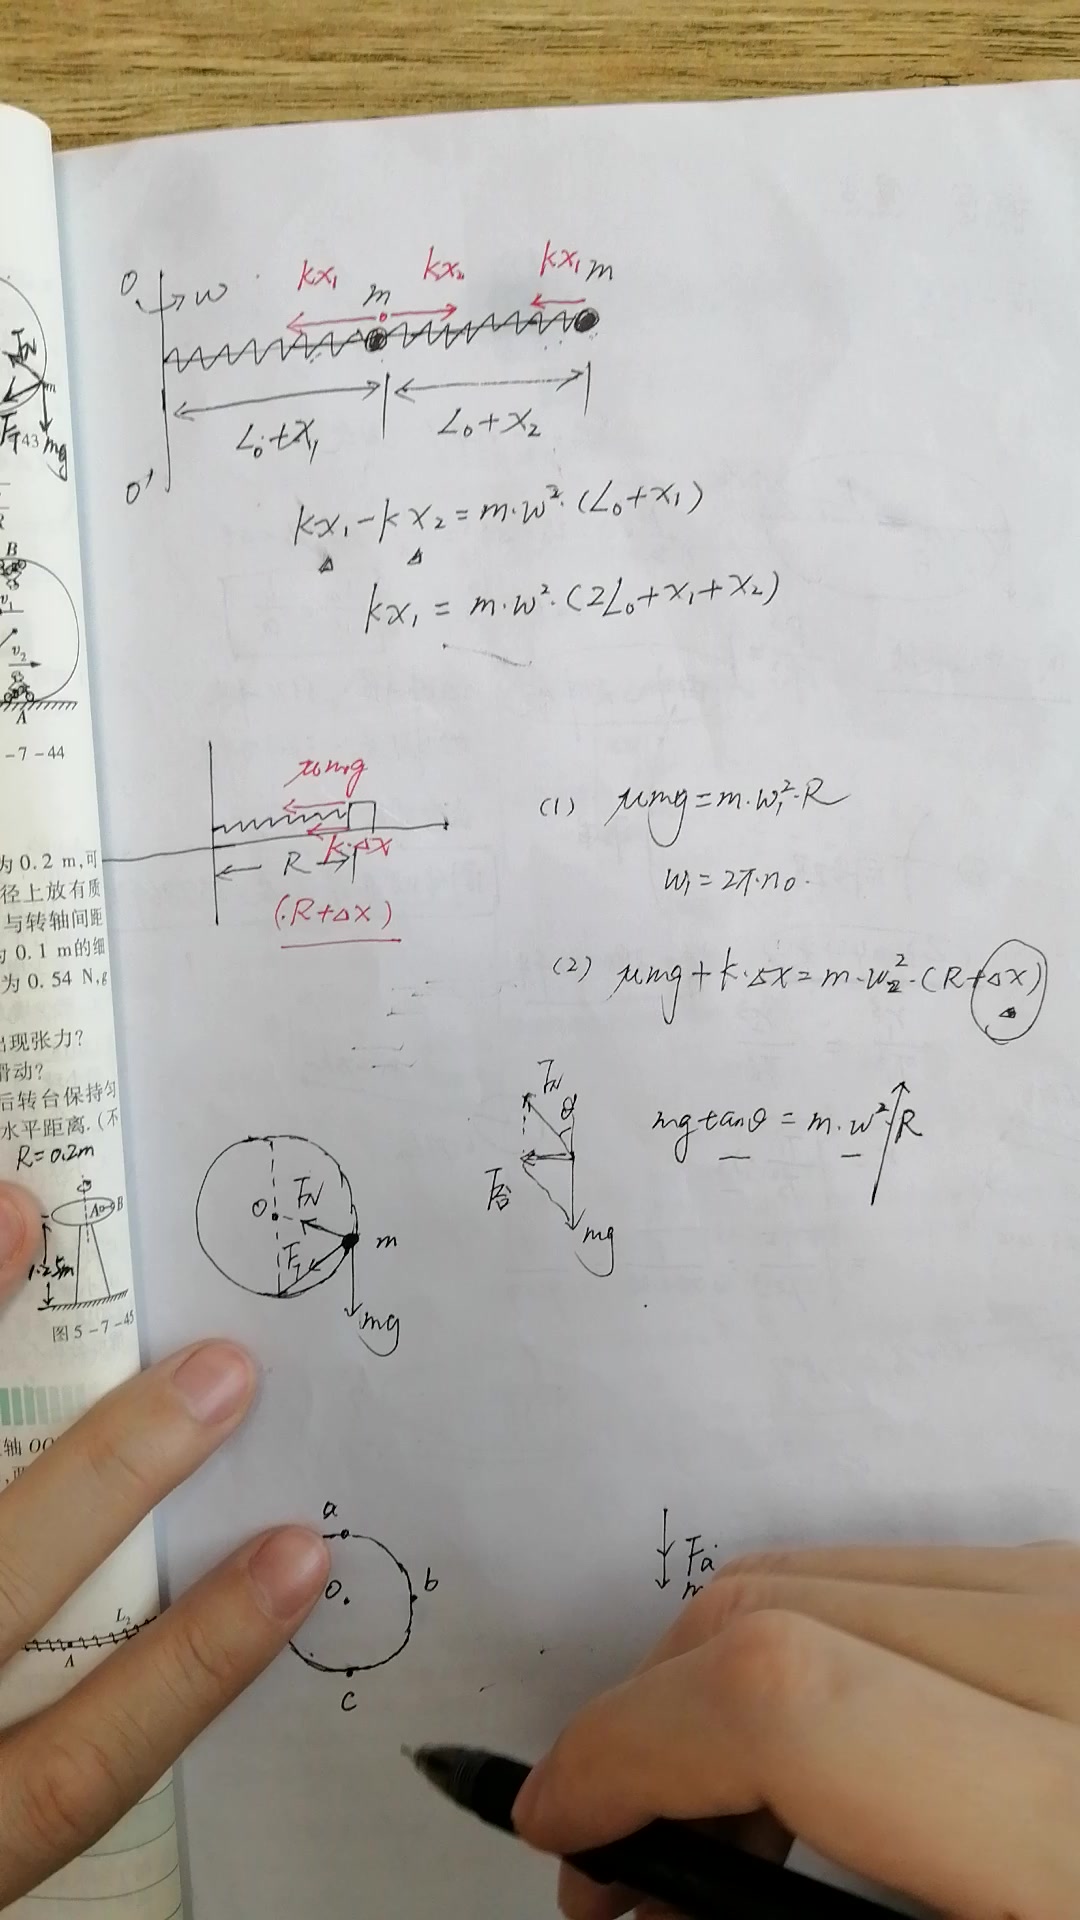 kx₁ kx₂ kx₁ m
O ω m
L₀+x₁ L₀+x₂
O'
kx₁-kx₂=m·ω²·(L₀+x₁)
kx₁=m·ω²·(2L₀+x₁+x₂)
μmg
k·Δx
R
(R+Δx)
(1) μmg=m·ω₁²·R
ω₁=2π·n₀.
(2) μmg+k·Δx=m·ω₂²·(R+Δx)
F_N θ
F合
mg
mgtanθ=m·ω²·R
O F_N m
F_T
mg
a
O b
c
Fa
F_N
F_T
43 mg
B
v₁
v₂
A
-7-44
为 0.2 m,可
径上放有质
与转轴间距
为 0.1 m的细
为 0.54 N,g
出现张力?
滑动?
后转台保持匀
水平距离.(不
R=0.2m
A B
1.25m
图5-7-45
轴 OO
L₂
A